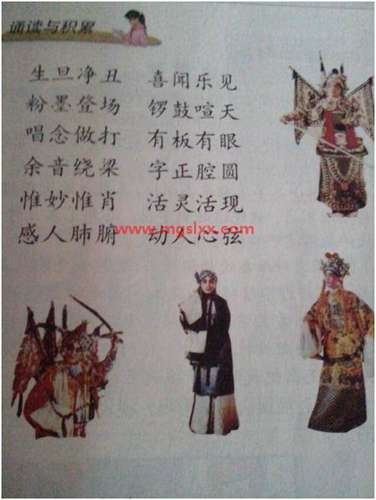 诵读与积累
生旦净丑 喜闻乐见
粉墨登场 锣鼓喧天
唱念做打 有板有眼
余音绕梁 字正腔圆
惟妙惟肖 活灵活现
www.mqslxx.com
感人肺腑 动人心弦